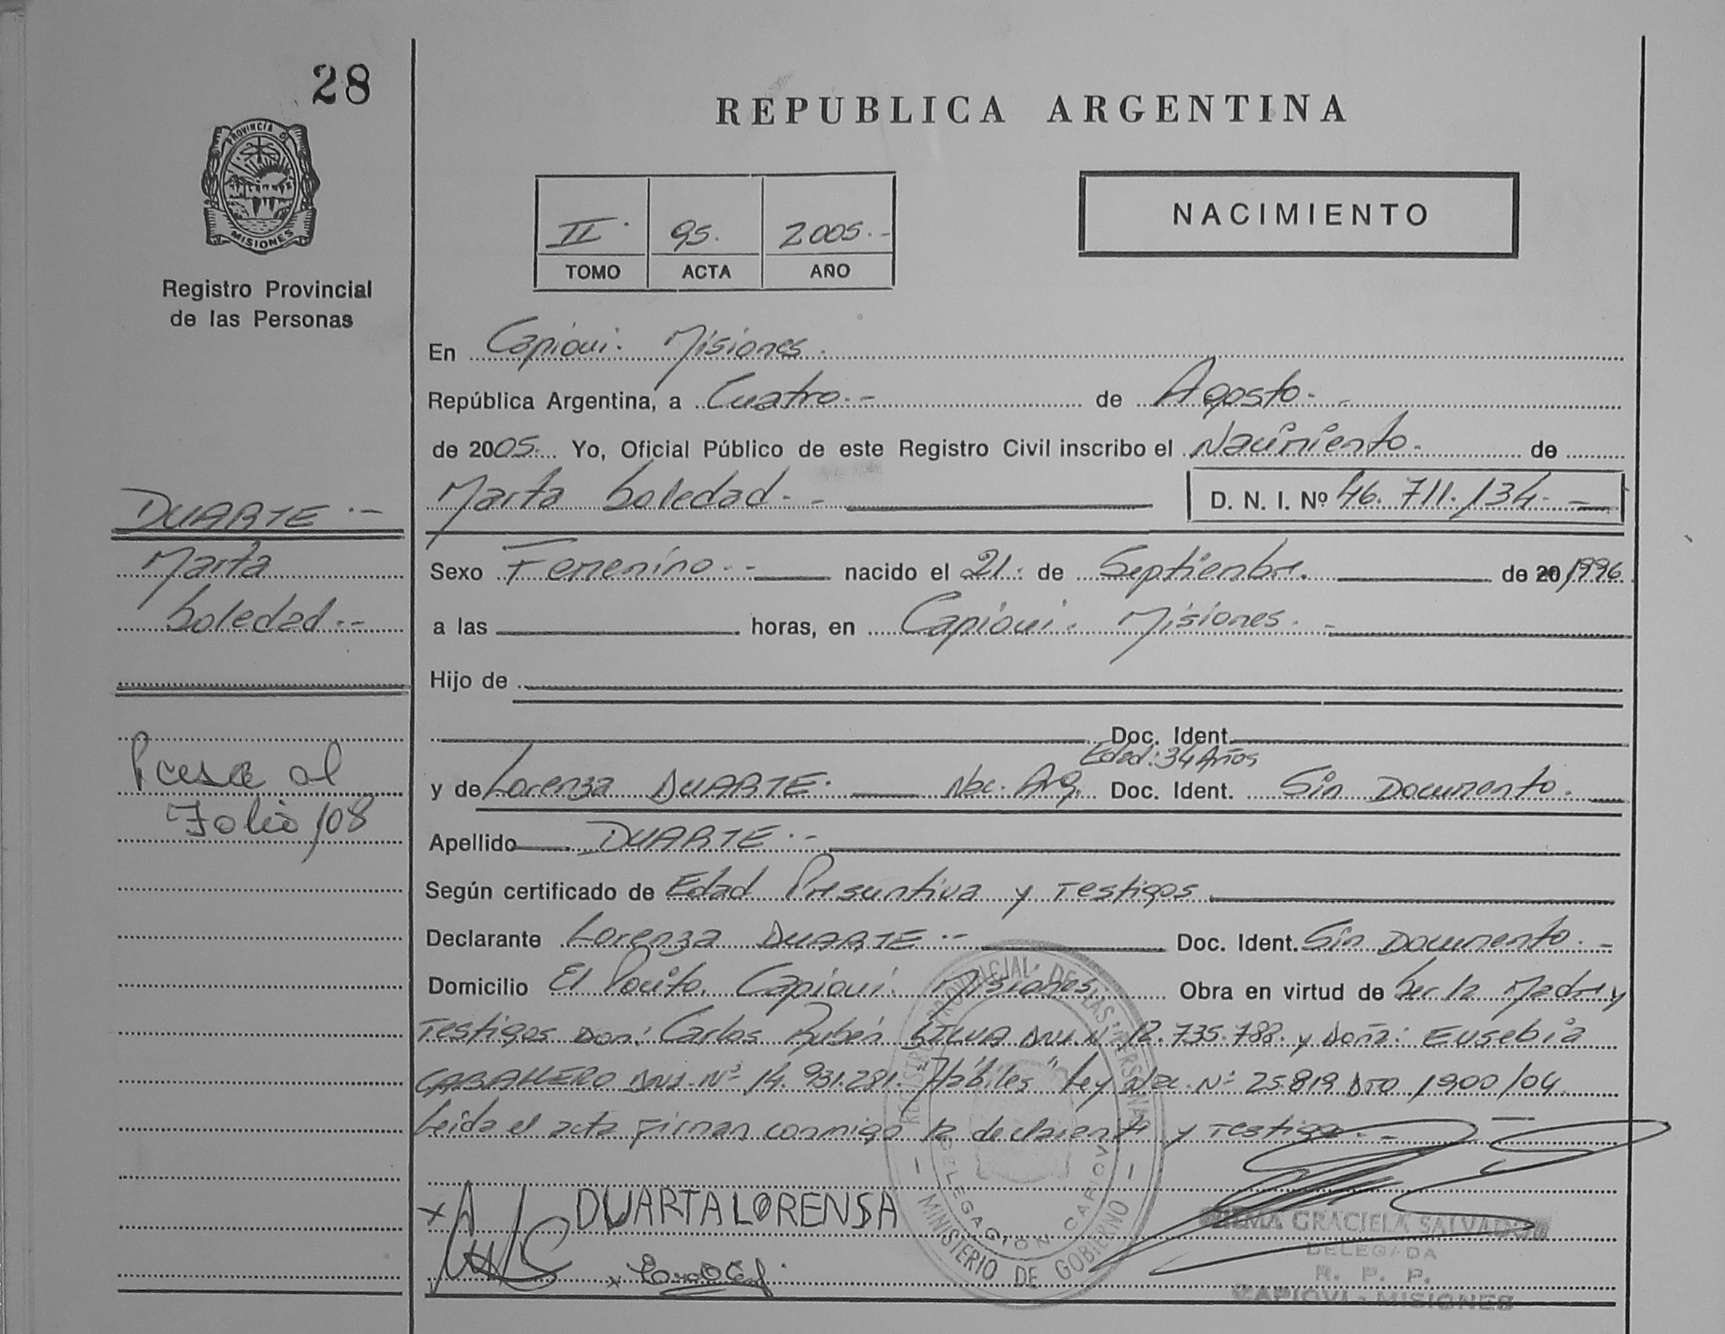 28
PROVINCIA DE
MISIONES
Registro Provincial
de las Personas
REPUBLICA ARGENTINA
II. 95. 2005.-
TOMO ACTA AÑO
NACIMIENTO
En Capiovi. Misiones.
República Argentina, a Cuatro.- de Agosto.-
de 2005. Yo, Oficial Público de este Registro Civil inscribo el Nacimiento.- de
DUARTE.-
Marta Soledad.- D. N. I. Nº 46.711.134.-
Marta
Sexo Femenino.- nacido el 21. de Septiembre. de 20 1996
Soledad.-
a las horas, en Capiovi. Misiones.-
Hijo de
Doc. Ident.
Pasa al
Edad: 34 Años
y de Lorenza DUARTE. Nac. Arg. Doc. Ident. Sin Documento.
Folio 108
Apellido DUARTE.-
Según certificado de Edad Presuntiva y Testigos
Declarante Lorenza DUARTE.- Doc. Ident. Sin Documento.-
Domicilio El Pocito. Capiovi. Misiones. Obra en virtud de Ser la Madre y
Testigos Don: Carlos Rubén SILVA DNI. Nº 12.735.788. y Doña: Eusebia
CABALLERO DNI. Nº 14.931.281. "Hábiles" Ley Nac. Nº 25819 DTO 1900/04.
Leida el acta Firman conmigo la declarante y Testigo.-
REGISTRO PROVINCIAL DE LAS PERSONAS
DELEGACION CAPIOVI
MINISTERIO DE GOBIERNO
x DUARTALORENSA
x
GRACIELA SALVADOR
DELEGADA
R. P. P.
CAPIOVI - MISIONES